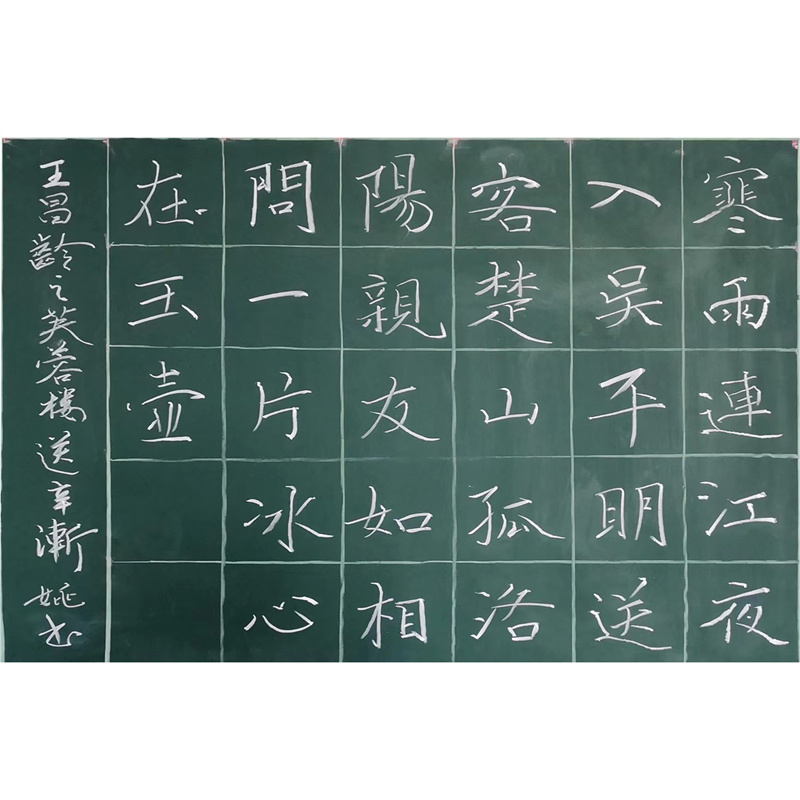 寒雨連江夜
入吳平明送
客楚山孤洛
陽親友如相
問一片冰心
在玉壺
王昌齡之芙蓉樓送辛漸 姚書